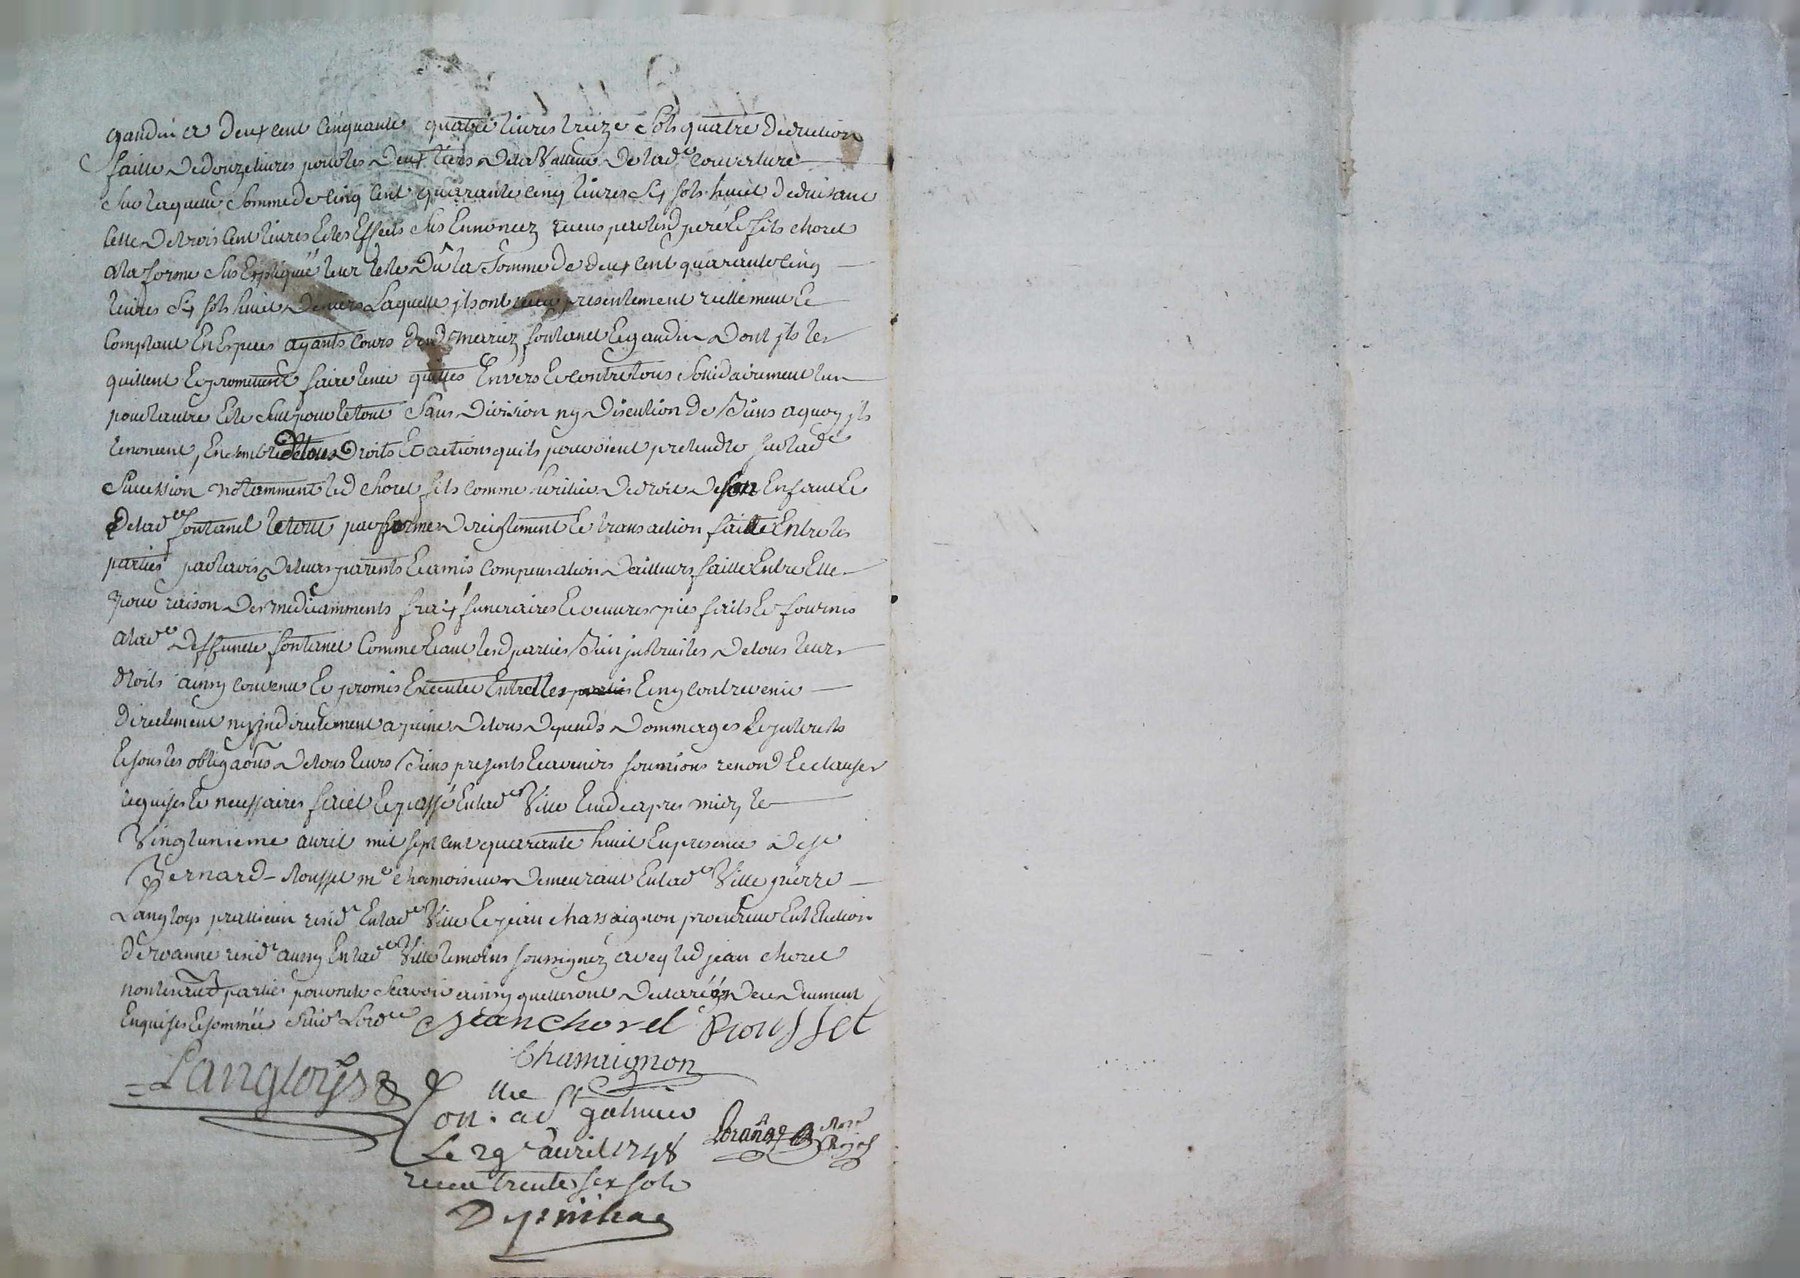 gaudin et deux cent cinquante quatre livres treize sols quatre deduction
faitte de douze livres pour les deux tiers de la valleur de lad.e couverture
sur laquelle somme de cinq cent quarante cinq livres six sols huict deduisant
celle de trois cent livres et les effects sus ennoncez receus par lesd pere et fils choret
a la forme sus expliquée leur reste dû la somme de deux cent quarante cinq
livres six sols huict deniers laquelle ils ont receu presentement reellement et
comptant en especes ayants cours desd mariez fontanel et gaudin dont ils les
quittent et promettent faire tenir quittes envers et contre tous sollidairement lun
pour lautre et le seul pour le tout sans division ny discution de biens a quoy ils
renoncent, ensemble de tous droits et actions quils pouvoient pretendre sur lad.e
succession notamment led choret fils comme heritier de droit de son enfant et
de lad.e fontanel le tout par forme de reiglement et transaction faitte entre les
parties par lavis de leurs parents et amis compensation dailleurs faitte entre elles
pour raison des medicamments fraix funeraires et oeuvres pies faits et fournis
a lad.e deffunte fontanel comme etant lesd parties bien instruites de tous leurs
droits ainsy convenu et promis executer entrelles parties et ny contrevenir
directement ny indirectement a peine de tous depends dommages et interets
et sous les obligaons de tous leurs biens presents et avenirs soumions renond et clauses
requises et necessaires faict et passé en lad.e ville etude apres midy le
vingtunieme avril mil sept cent quarante huict en presence de sr
Bernard Rousset m.e chamoiseur demeurant en lad.e ville pierre
Langloys praticien resid.t en lad.e ville et jean chassaignon procureur en l'election
de roanne resid.t aussy en lad.e ville temoins soussignez avec led jean choret
non les autres parties pour ne le scavoir ainsy quelles ont declaré de ce deument
enquises et sommée suiv.t lord.ce Jean Choret Rousset
Chassaignon
Langloys
on.lle a St galmier
Le 29e avril 1748
receu trente six sols
not.re Royal